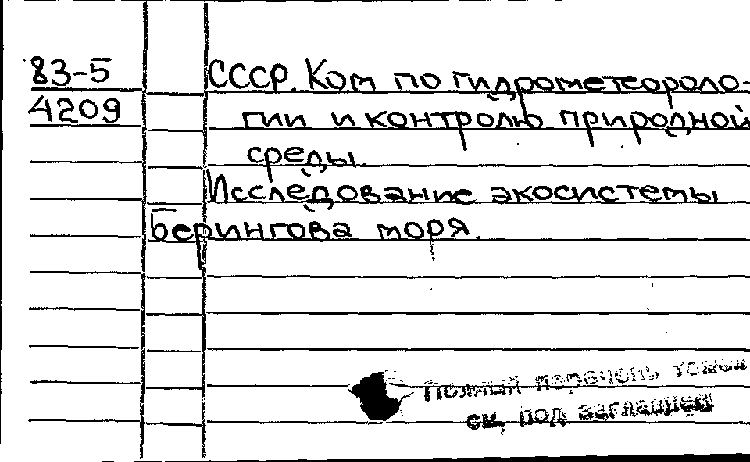 83-5
4209
СССР. Ком по гидрометеороло-
гии и контролю природной
среды.
Исследование экосистемы
Берингова моря.
Полный перечень томов
см. под заглавием